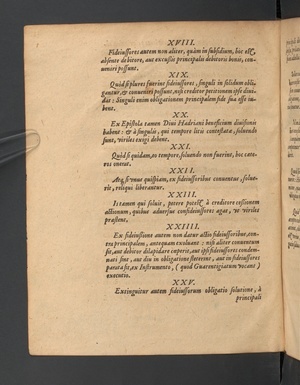 XVIII.
Fideiussores autem non aliter, quàm in subsidium, hoc est,
absente debitore, aut excussis principalis debitoris bonis, con-
ueniri possunt.
XIX.
Quòd si plures fuerint fideiussores, singuli in solidum obli-
gantur, & conueniri possunt, nisi creditor petitionem ipse diui-
dat: Singuli enim obligationem principalem fide sua esse iu-
bent.
XX.
Ex Epistola tamen Diui Hadriani beneficium diuisionis
habent: & à singulis, qui tempore litis contestatæ, soluendo
sunt, viriles exigi debent.
XXI.
Quòd si quidam, eo tempore, soluendo non fuerint, hoc cæte-
ros onerat.
XXII.
Atq; si vnus quispiam, ex fideiussoribus conuentus, solue-
rit, reliqui liberantur.
XXIII.
Is tamen qui soluit, petere potest, à creditore cessionem
actionum, quibus aduersus confideiussores agat, vt viriles
præstent.
XXIIII.
Ex fideiussione autem non datur actio fideiussoribus, con-
tra principalem, antequam exoluant: nisi aliter conuentum
sit, aut debitor dilapidare inperit, aut ipsi fideiussores condem-
nati sint, aut diu in obligatione steterint, aut in fideiussores
parata sit, ex Instrumento, (quod Guarentigiatum vocant)
executio.
XXV.
Extinguitur autem fideiussorum obligatio solutione, à
principali